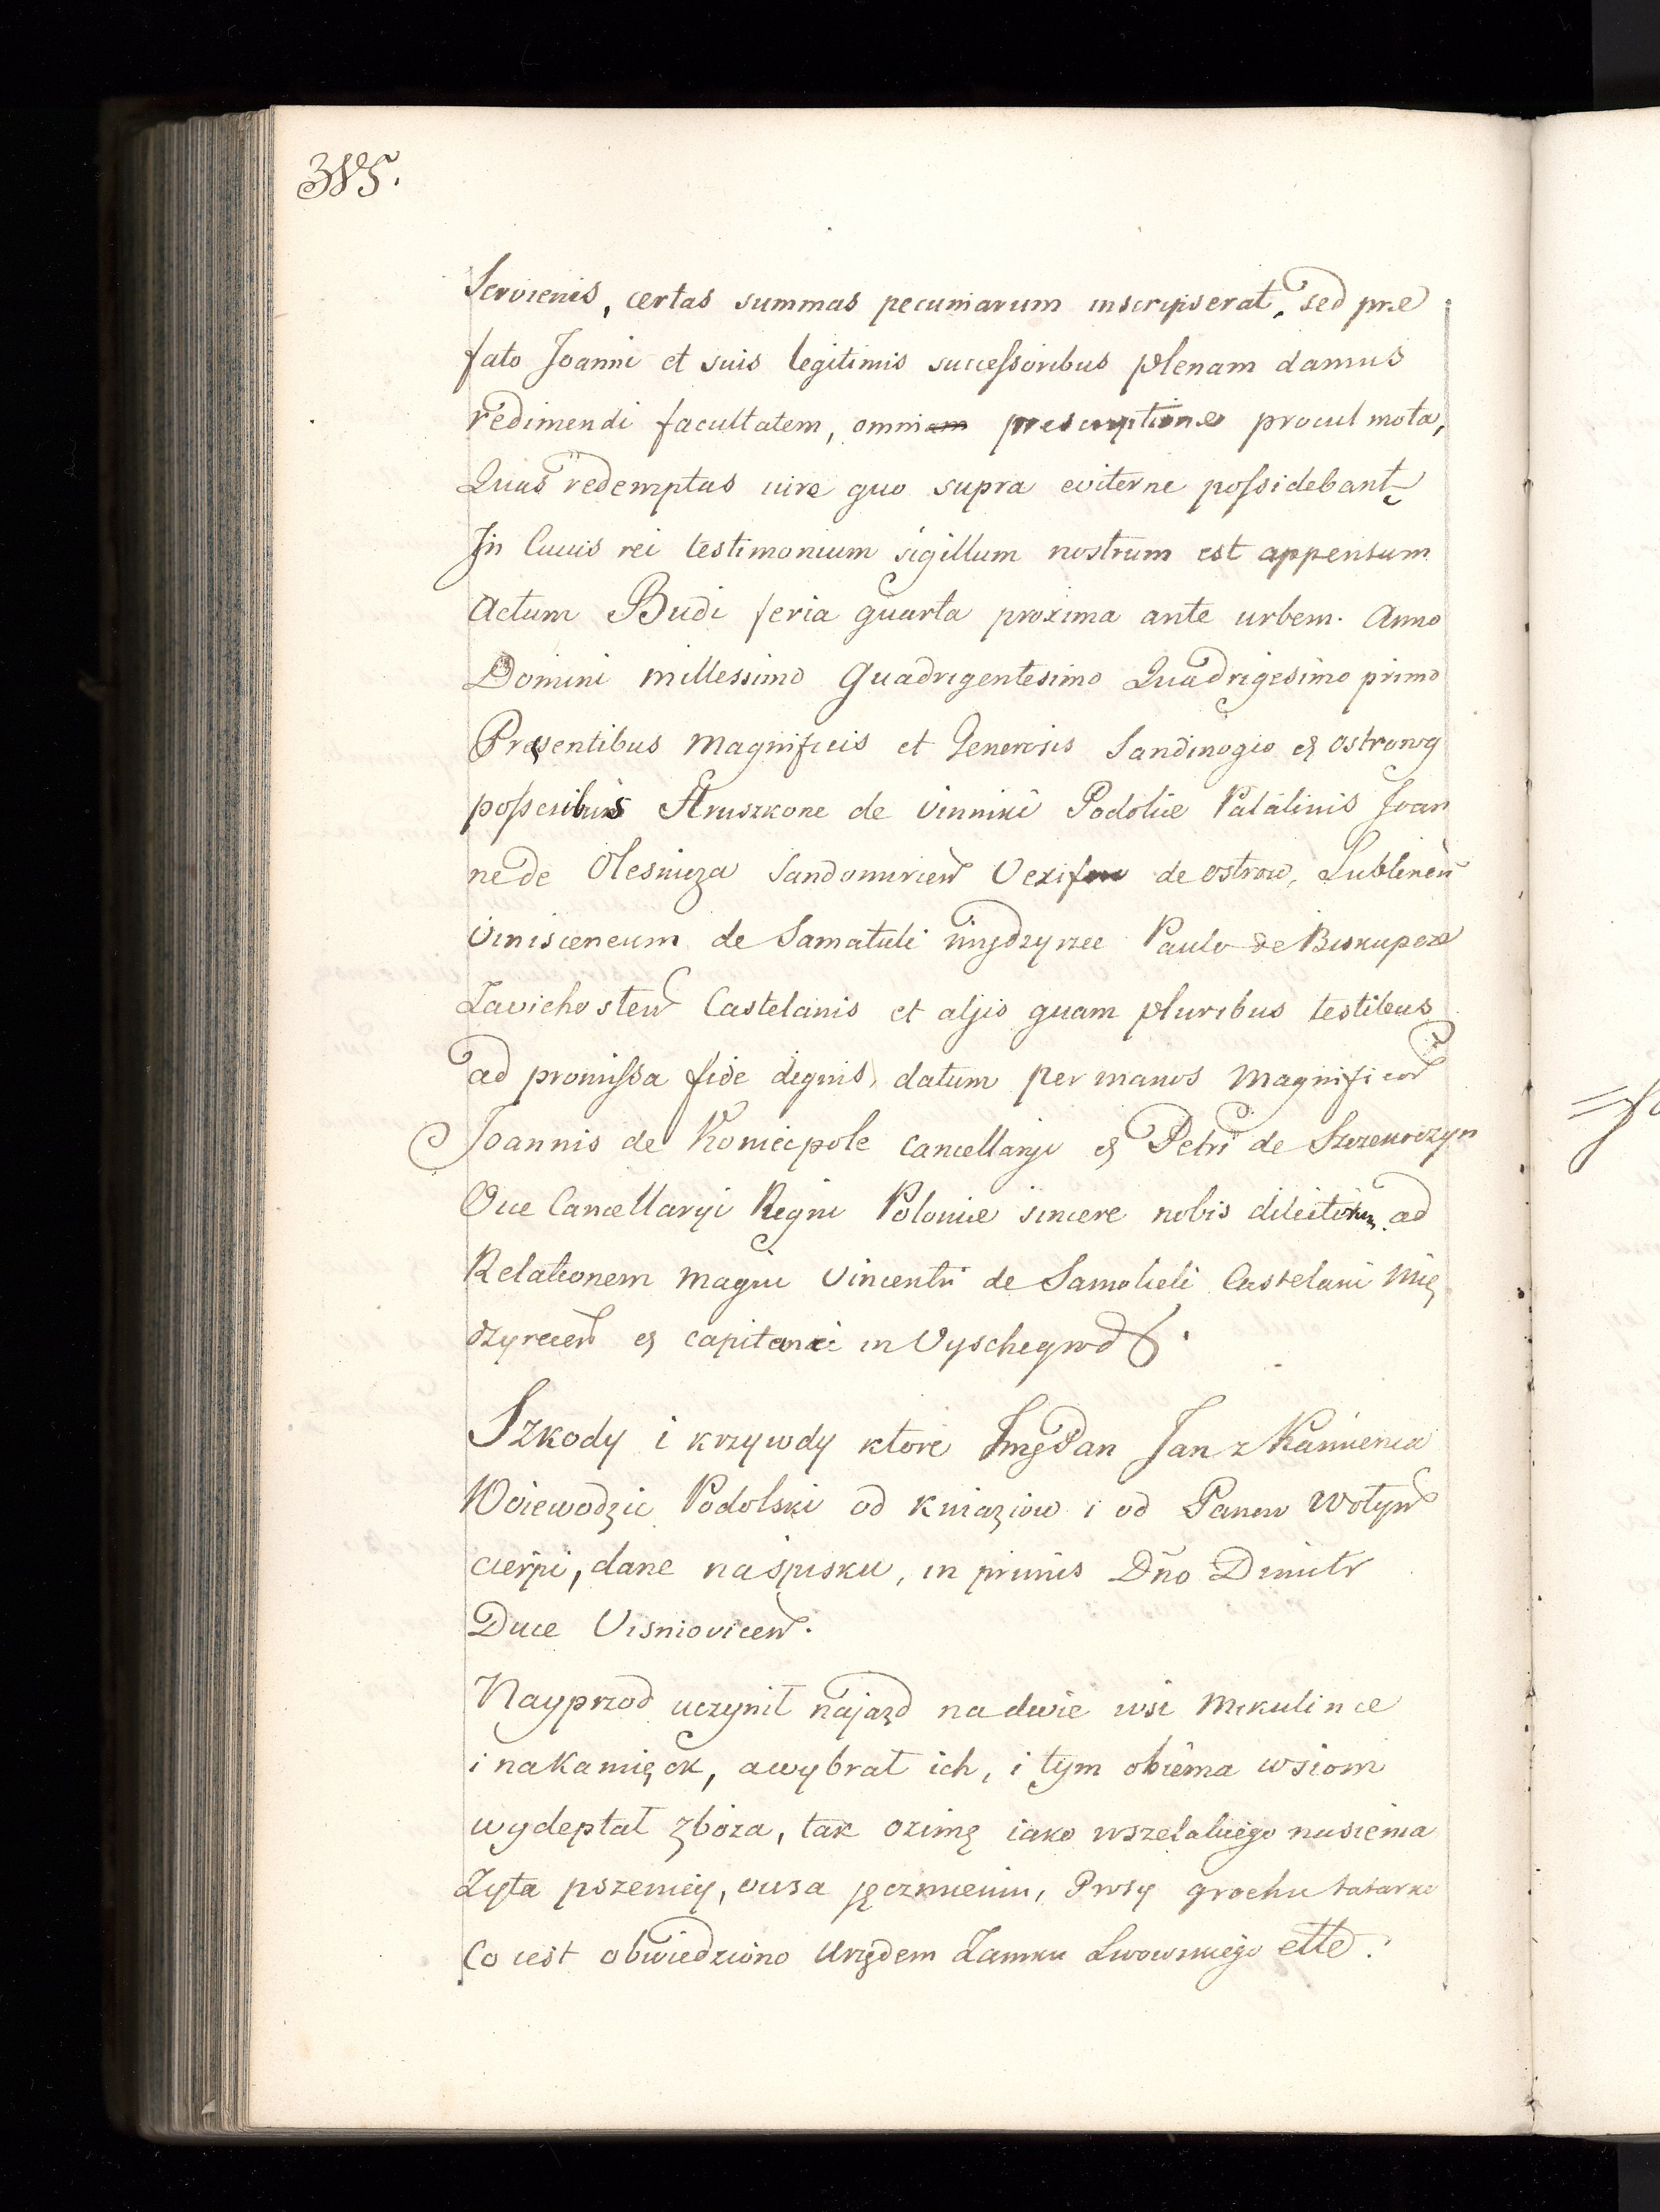 385.
Servienis, certas summas pecuniarum inscripserat, sed præ
fato Joanni et suis legitimis successoribus plenam damus
redimendi facultatem, omni prescriptione procul mota,
Quas redemptas iure quo supra eviterne possidebant
In Cuius rei testimonium sigillum nostrum est appensum
Actum Budæ feria quarta proxima ante urbem. Anno
Domini millessimo Quadrigentesimo Quadrigesimo primo
Presentibus Magnificis et Generosis Sandinogio & ostrorog
Hruszkone de Vinniki Podoliæ Palatinis Joan
ne de Olesnicza Sandomirien de ostrow, Lublinen
Viniscencium de Samatuli międzyrzec Paulo de Biskupeze
Zavichosten Castelanis et aljis quam pluribus testibus
ad promissa fide dignis, datum per manus Magnificor
Joannis de Koniecpole cancellarji & Petri de Szczekoczyn
Vice Cancellaryi Regni Poloniæ sincere nobis dilectorum ad
Relationem magni Vincentii de Samotuli Castelani Mię
dzyrecen & capitanei in Vyschegrod
Szkody i krzywdy ktore Jmę Pan Jan z Kamienca
Woiewodzic Podolski od kniaziow i od Panow Wołyń
cierpi, dane na spisku, in primis Dño Dimitr
Duce Visniovicen.
Nayprzod uczynił najazd na dwie wsi Mikulince
i na Kamięck, a wybrał ich, i tym obiema wsiom
wydeptał zboża, tak ozimę iako wszelakiego nasienia
Żyta pszenicy, owsa jęczmieniu, Prosy grochu tatarke
Co iest obwiedziono Urzędem Zamku Lwowskiego ette.